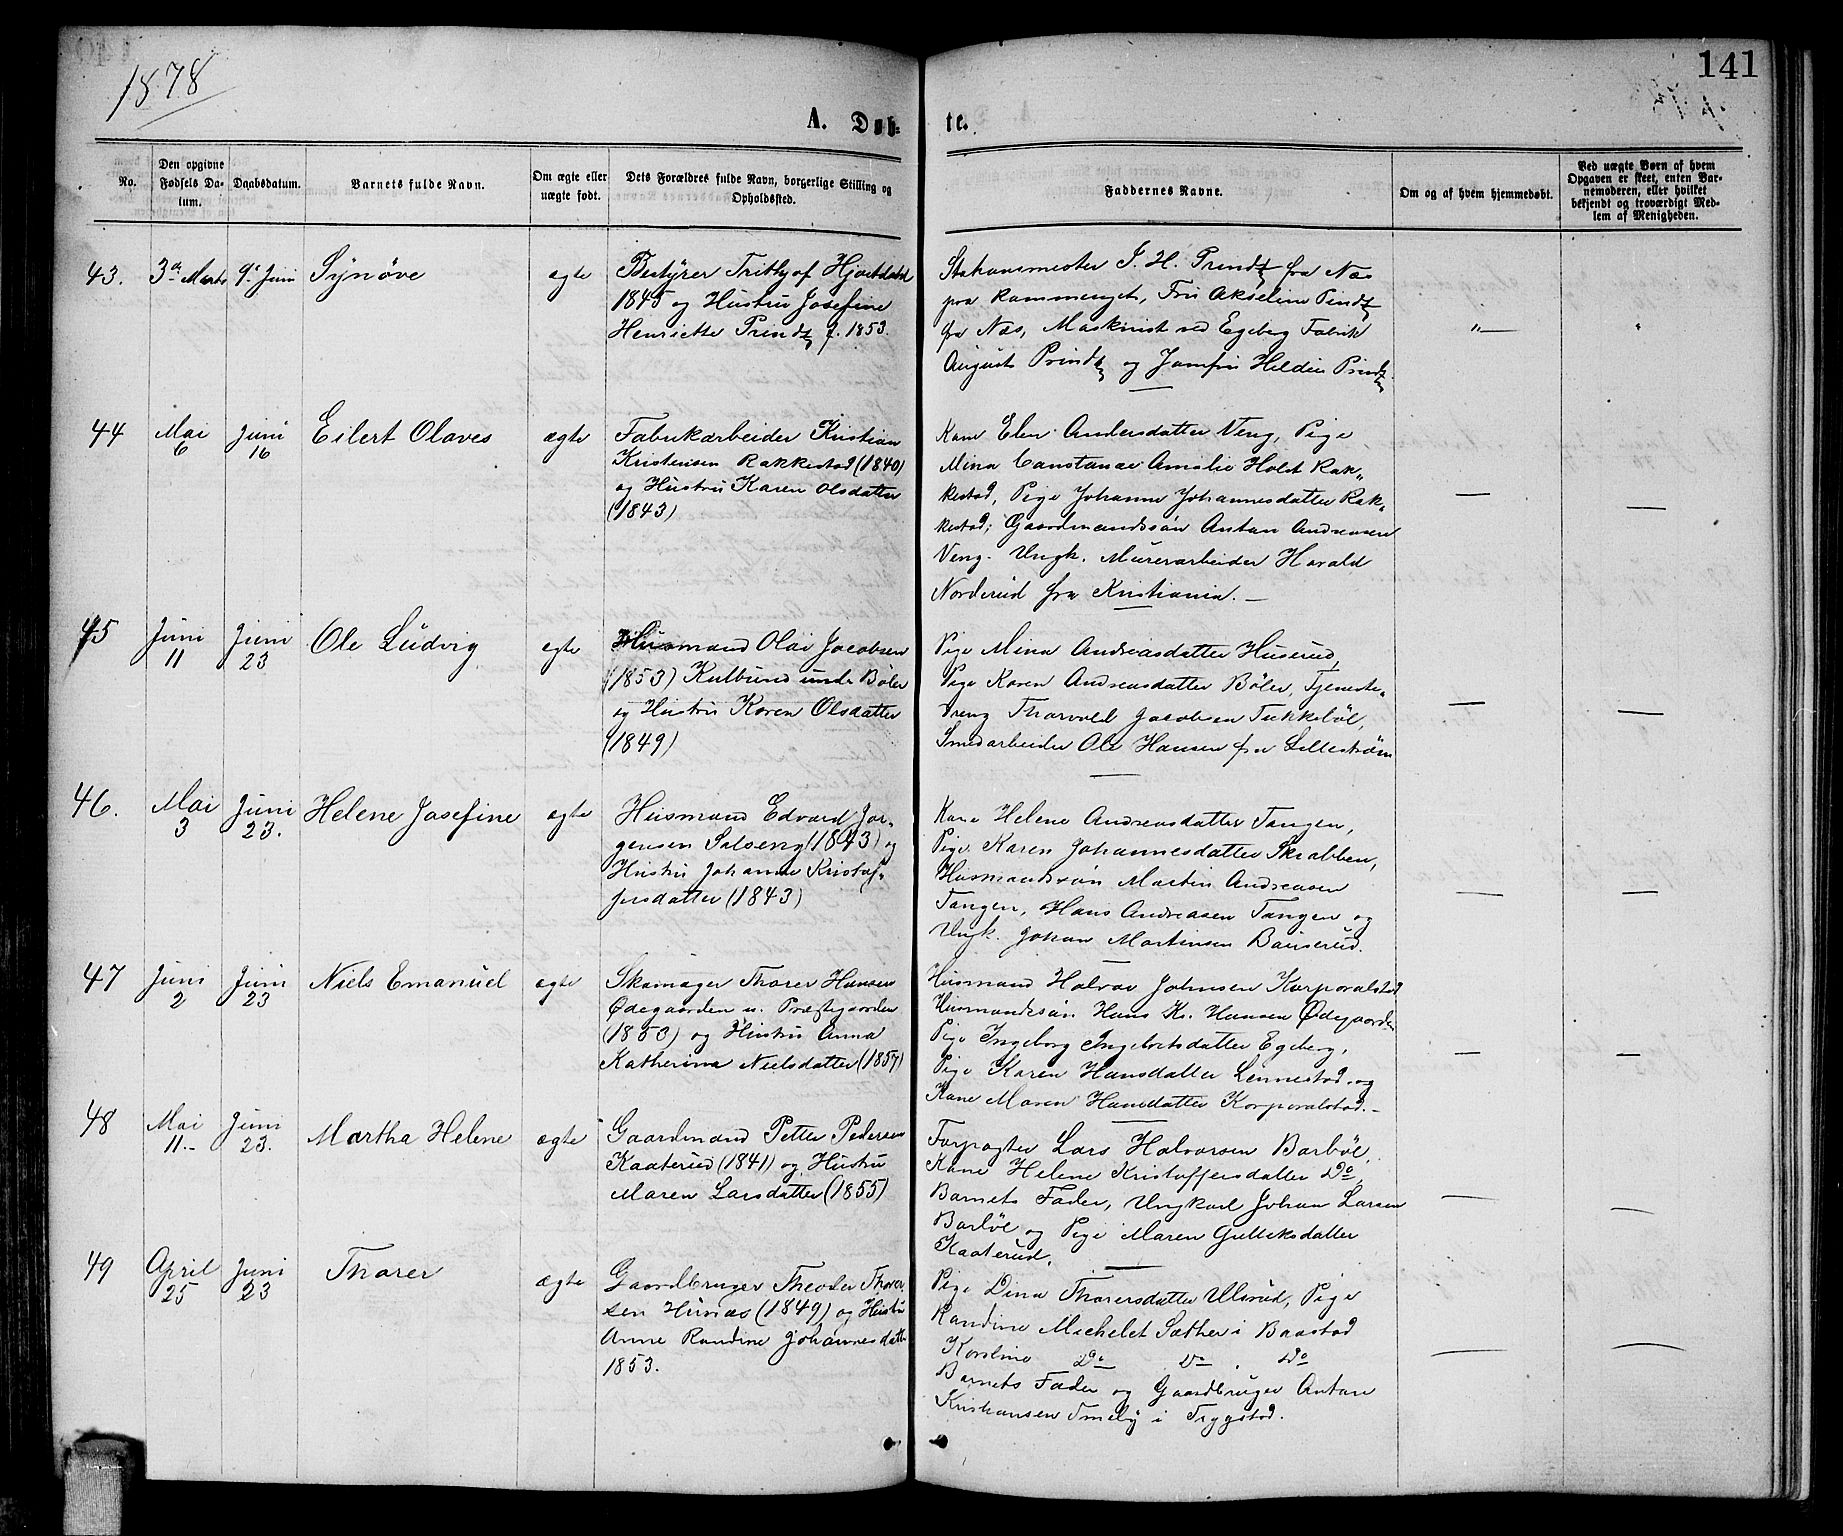 1878
141
A. Døb-
te.
No.
Den opgivne Fødsels Da-
tum.
Daabsdatum.
Barnets fulde Navn.
Om ægte eller uægte født.
Dets Forældres fulde Navn, borgerlige Stilling og Opholdssted.
Faddernes Navne.
Om og af hvem hjemmedøbt.
Ved uægte Børn af hvem
Opgaven er skeet, enten Bar-
nemoderen, eller hvilket
bekjendt og troværdigt Med-
lem af Menigheden.
43.
3die Marts
9. Juni
Synøve
ægte
Bestyrer Frithjof
1845 og Hustru Josefine
Henriette Prindtz f. 1853.
Stationsmester J. H. Prindtz fra Næs
Fru Akseline Prindtz
fra Næs, Maskinist ved Egeberg Fabrik
August Prindtz og Jomfru Prindtz
44
Mai
6
Juni
16
Eilert Olaves
ægte
Fabrikarbeider Kristian
Kristensen Rakkestad (1840)
og Hustru Karen Olsdatter
(1843)
Kone Elen Andersdatter Veng, Pige
Mina Constanse Amalie Holst Rak-
kestad, Pige Johanne Johannesdatter Rak-
kestad; Gaardmandssøn Anton Andreasen
Veng. Ungk. Murerarbeider Harald
Norderud fra Kristiania.
45
Juni
11
Juni
23
Ole Ludvig
ægte
Husmand Olai Jacobsen
(1853) Kulbund under Bøler
og Hustru Karen Olsdatter
(1849)
Pige Mina Andreasdatter Huserud,
Pige Karen Andreasdatter Bøler, Tjeneste-
dreng Thorvald Jacobsen Tukkebøl,
Smedarbeider Ole Hansen fra Lillestrøm
46.
Mai
3
Juni
23.
Helene Josefine
ægte
Husmand Edvard Jør-
gensen Solseng (1843) og
Hustru Johanne Kristof-
fersdatter (1843)
Kone Helene Andreasdatter Tangen,
Pige Karen Johannesdatter Skrabben,
Husmandssøn Martin Andreasen
Tangen, Hans Andreasen Tangen og
Ungk. Johan Martinsen Bauserud.
47
Juni
2
Juni
23
Niels Emanuel
ægte
Skomager Thorer Hansen
Ødegaarden u. Præstgaarden
(1853) og Hustru Anna
Katherina Nielsdatter (1857)
Husmand Halvor Johnsen Korporalstad
Husmandssøn Hans Kr. Hansen Ødegaarden
Pige Ingeborg Ingebretsdatter Egeberg,
Pige Karen Hansdatter Lennestad og
Kone Maren Hansdatter Korporalstad.
48
Mai
11.
Juni
23.
Martha Helene
ægte
Gaardmand Petter Pedersen
Kaaterud (1841) og Hustru
Maren Larsdatter (1855)
Forpagter Lars Halvorsen Barbøl,
Kone Helene Kristoffersdatter Do,
Barnets Fader, Ungkarl Johan Larsen
Barbøl og Pige Maren Gulleksdatter
Kaaterud.
49
April
25
Juni
23
Thorer
ægte
Gaardbruger Theodor Thorer-
sen Husaas (1849) og Hustru
Anne Randine Johannesdatter
1853.
Pige Dina Thorersdatter Ulsrud, Pige
Randine Michelet Sæther i Baastad
Karoline Do Do Do
Barnets Fader og Gaardbruger Anton
Kristiansen i Trygstad.